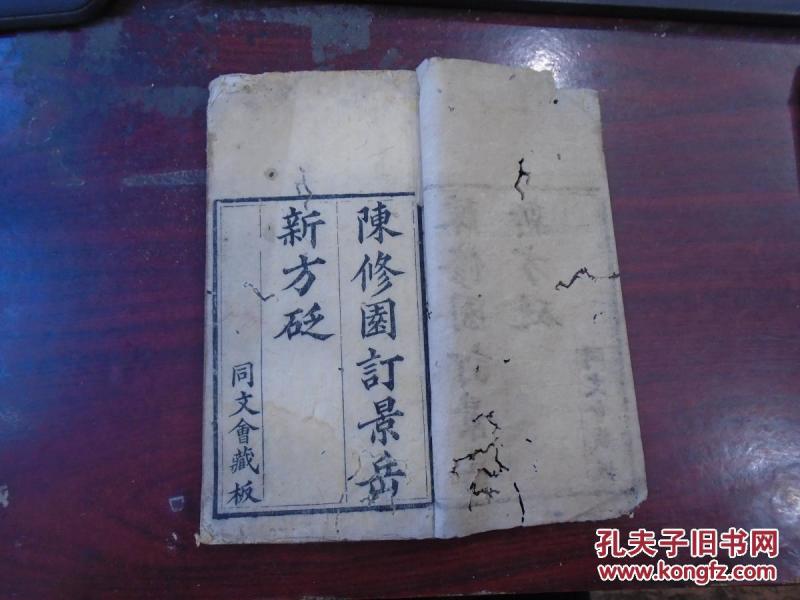 陳修園訂景岳
新方砭
同文會藏板
孔夫子旧书网
www.kongfz.com